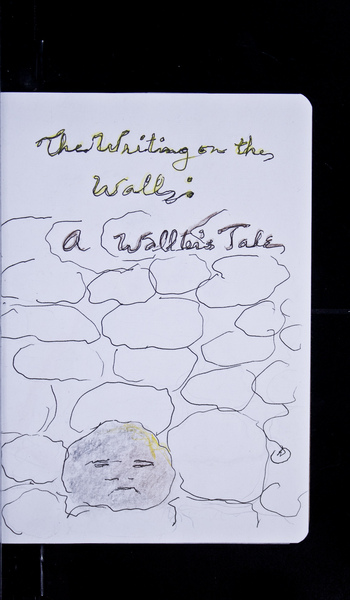 The Writing on the
Wall:
A Waller's Tale